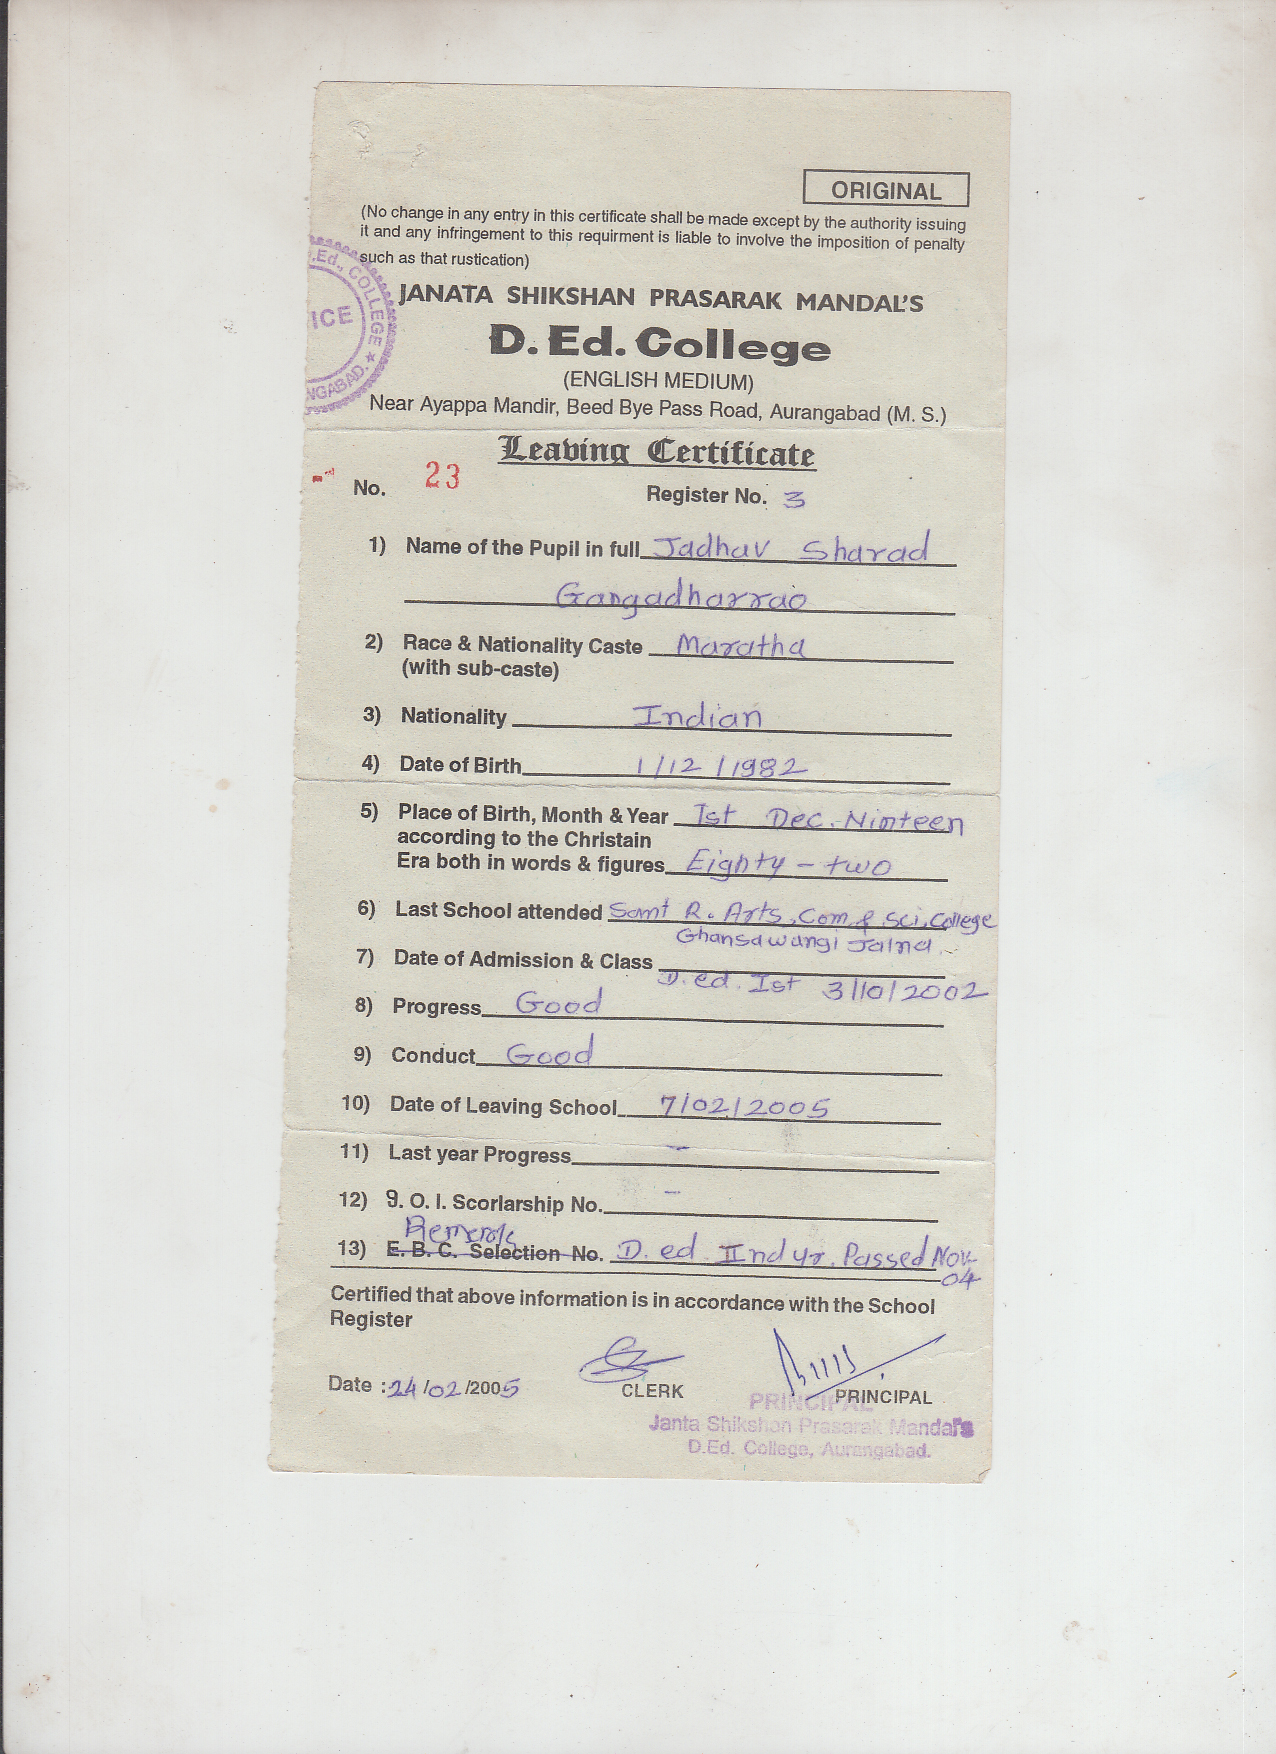 ORIGINAL
(No change in any entry in this certificate shall be made except by the authority issuing
it and any infringement to this requirment is liable to involve the imposition of penalty
such as that rustication)
.Ed., COLLEGE ★
ICE
NGABAD.
JANATA SHIKSHAN PRASARAK MANDAL'S
D. Ed. College
(ENGLISH MEDIUM)
Near Ayappa Mandir, Beed Bye Pass Road, Aurangabad (M. S.)
Leaving Certificate
No. 23 Register No. 3
1) Name of the Pupil in full Jadhav Sharad
Gangadharrao
2) Race & Nationality Caste Maratha
(with sub-caste)
3) Nationality Indian
4) Date of Birth 1/12/1982
5) Place of Birth, Month & Year Ist Dec. Ninteen
according to the Christain
Era both in words & figures Eighty-two
6) Last School attended Samt R. Arts, Com & Sci, College
Ghansawangi Jalna
7) Date of Admission & Class
D.ed. Ist 3/10/2002
8) Progress Good
9) Conduct Good
10) Date of Leaving School 7/02/2005
11) Last year Progress –
12) 9. O. I. Scorlarship No. –
13) E. B. C. Selection No. D.ed IInd yr. Passed Nov-
04
Certified that above information is in accordance with the School
Register
Date : 24/02/2005 CLERK PRINCIPAL
PRINCIPAL
Janta Shikshan Prasarak Mandal's
D.Ed. College, Aurangabad.